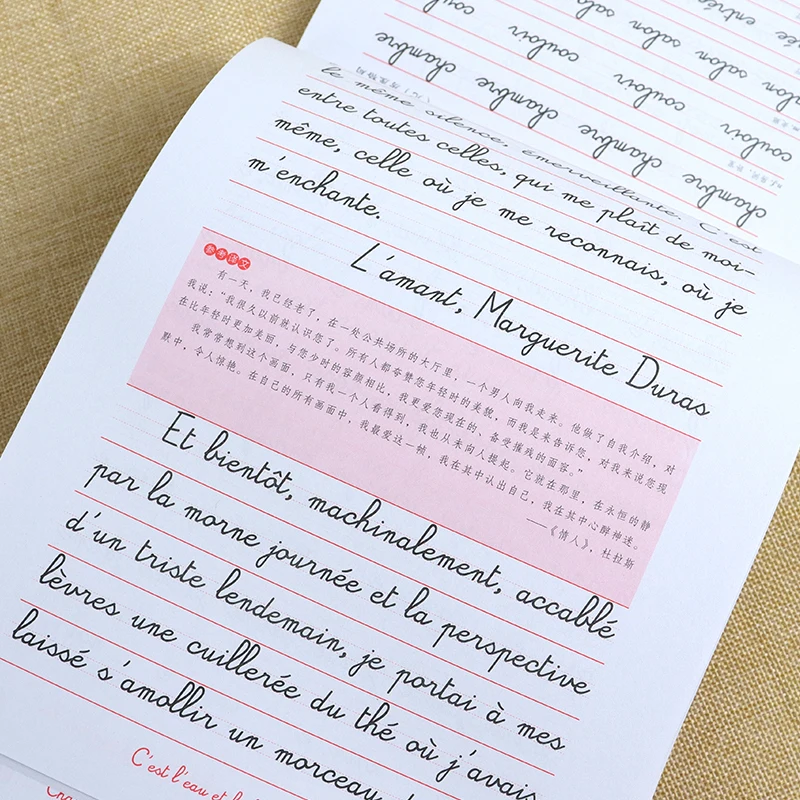 entrée
salon salon salon salon
couloir couloir couloir couloir
chambre chambre chambre chambre
le même silence, émerveillante. C'est
entre toutes celles, qui me plaît de moi-
même, celle où je me reconnais, où je
m'enchante.
L'amant, Marguerite Duras
参考译文
有一天，我已经老了，在一处公共场所的大厅里，一个男人向我走来。他做了自我介绍，对
我说：“我很久以前就认识您了。所有人都夸赞您年轻时的美貌，而我是来告诉您，对我来说您现
在比年轻时更加美丽，与您少时的容颜相比，我更爱您现在的、备受摧残的面容。”
我常常想到这个画面，只有我一个人看得到，我也从未向人提起。它就在那里，在永恒的静
默中，令人惊艳。在自己的所有画面中，我最爱这一帧，我在其中认出自己，我在其中心醉神迷。
——《情人》，杜拉斯
Et bientôt, machinalement, accablé
par la morne journée et la perspective
d'un triste lendemain, je portai à mes
lèvres une cuillerée du thé où j'avais
laissé s'amollir un morceau
C'est l'eau et